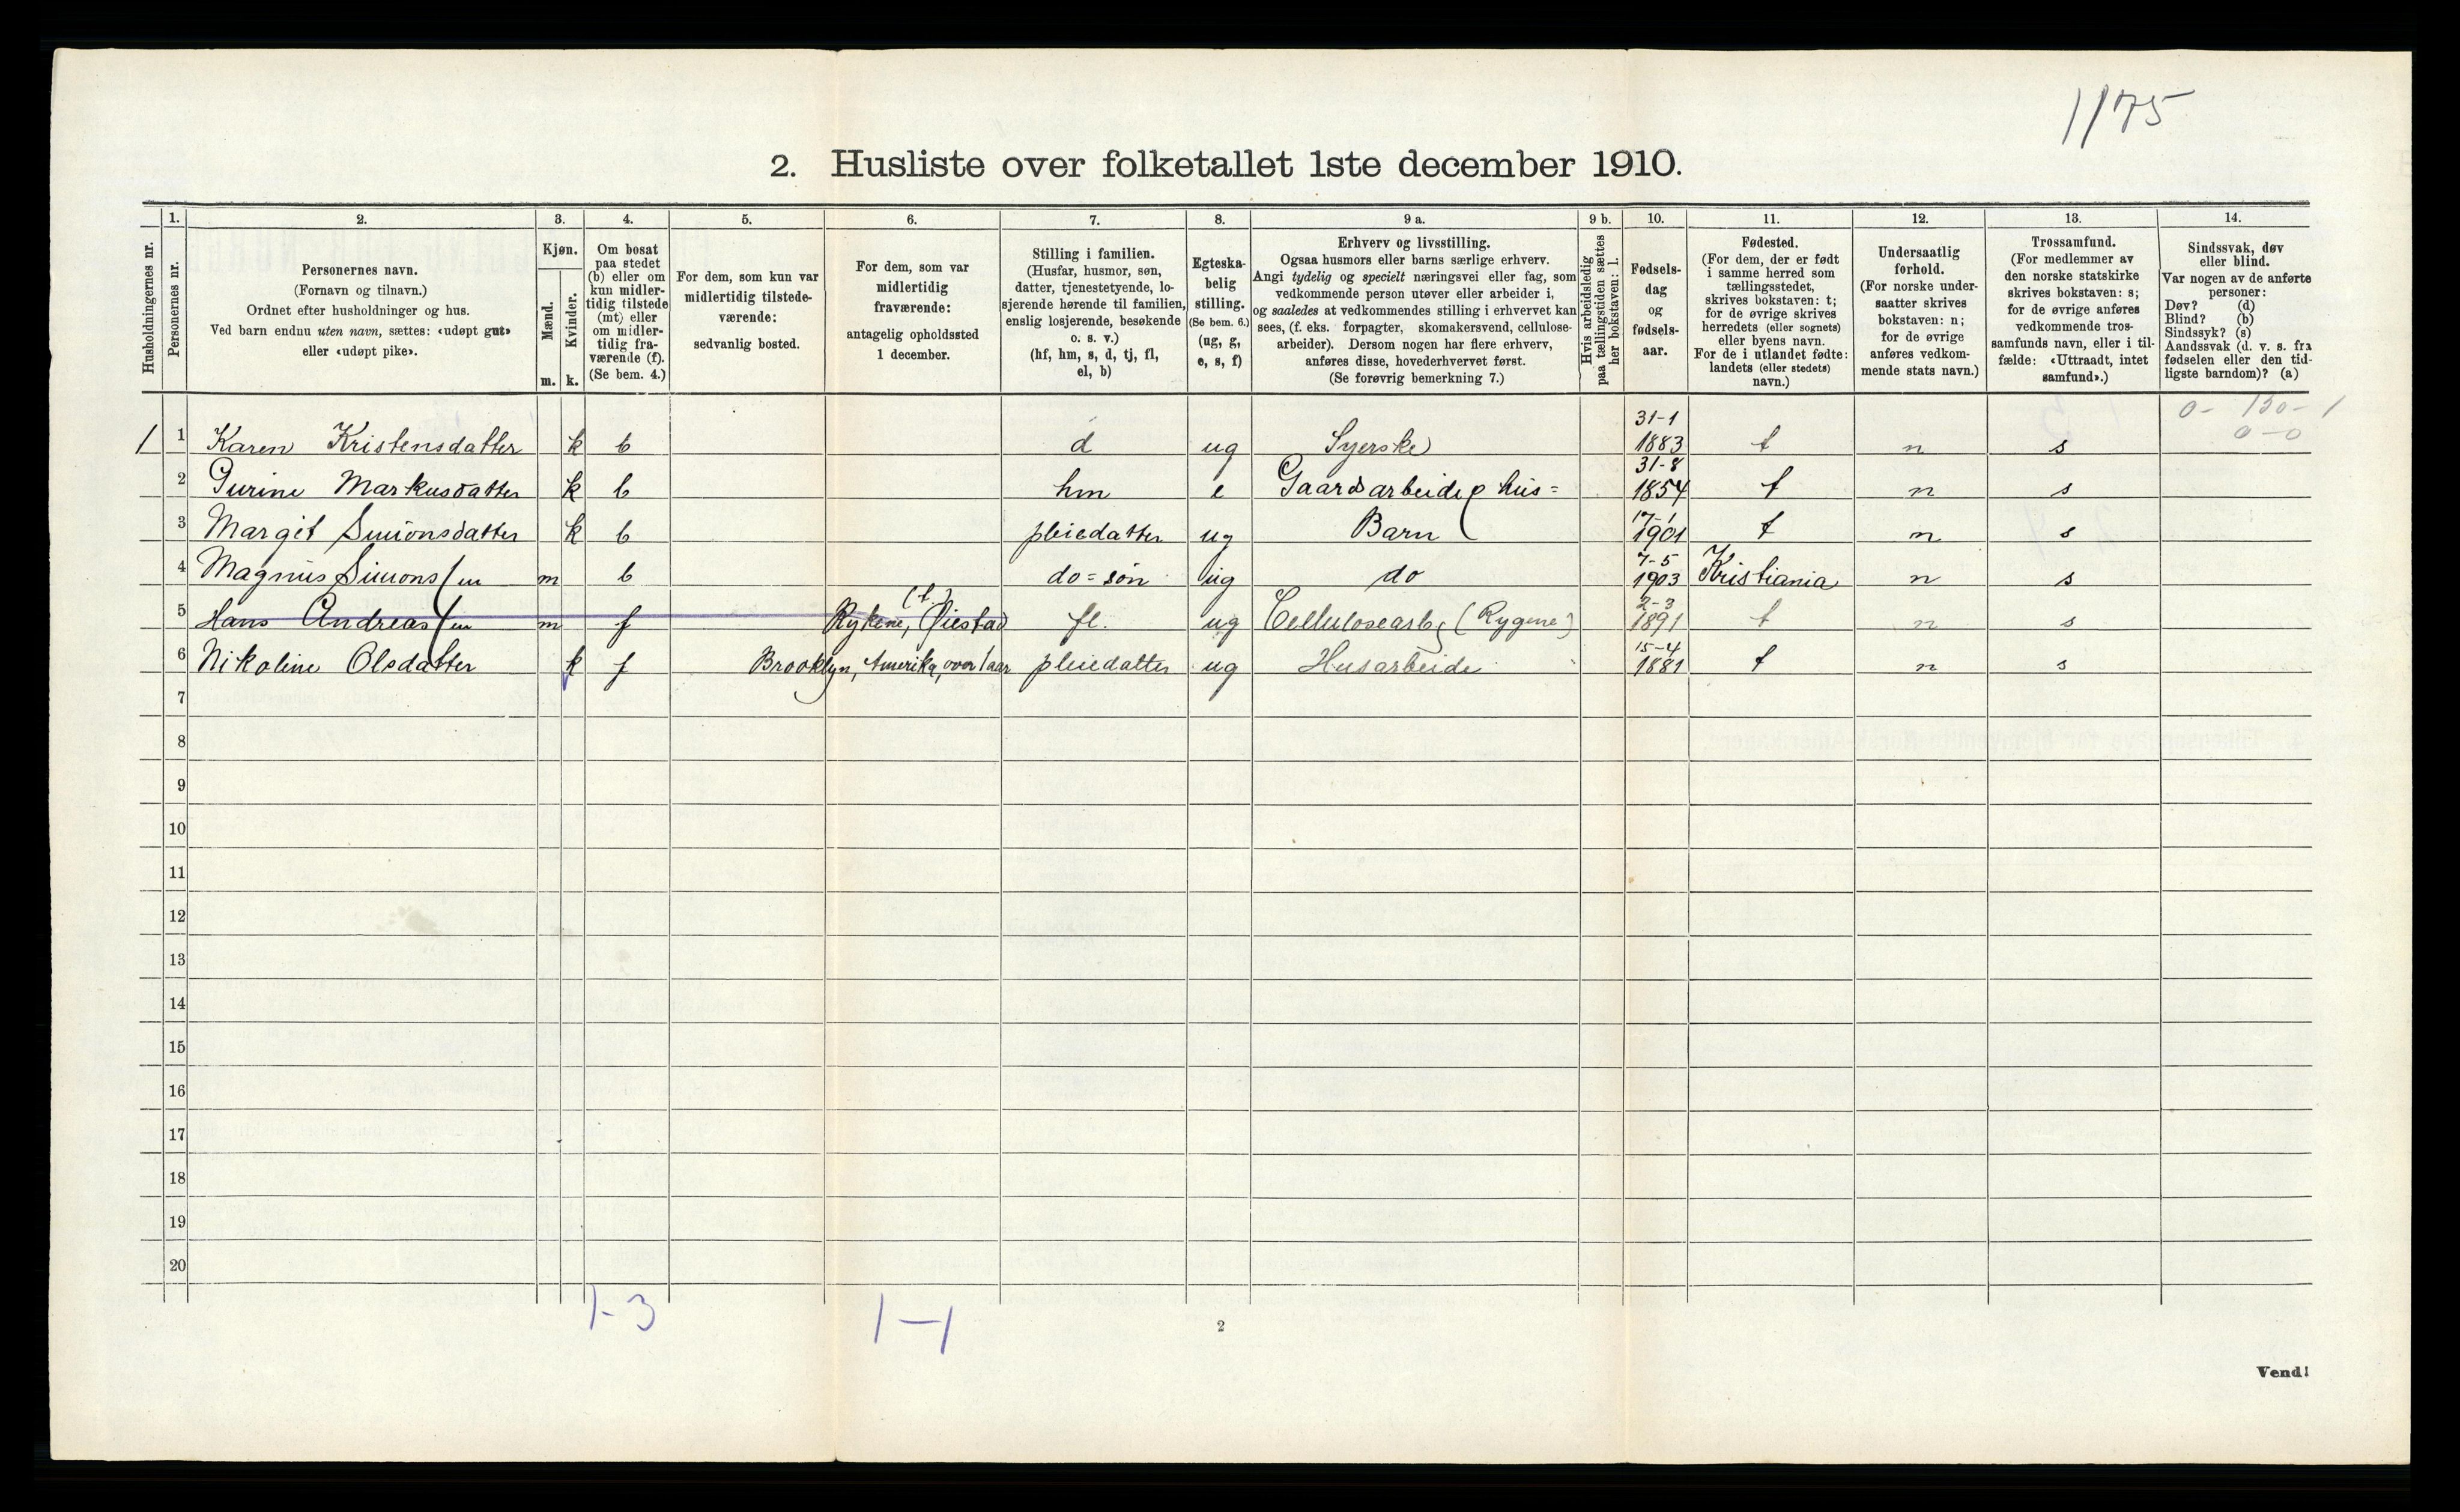 1175
2. Husliste over folketallet 1ste december 1910.
Husholdningernes nr.
1. Personernes nr.
2. Personernes navn.
(Fornavn og tilnavn.)
Ordnet efter husholdninger og hus.
Ved barn endnu uten navn, sættes: «udøpt gut»
eller «udøpt pike».
3. Kjøn.
Mænd. Kvinder.
m. k.
4. Om bosat
paa stedet
(b) eller om
kun midler-
tidig tilstede
(mt) eller
om midler-
tidig fra-
værende (f).
(Se bem. 4.)
5. For dem, som kun var
midlertidig tilstede-
værende:
sedvanlig bosted.
6. For dem, som var
midlertidig
fraværende:
antagelig opholdssted
1 december.
7. Stilling i familien.
(Husfar, husmor, søn,
datter, tjenestetyende, lo-
sjerende hørende til familien,
enslig losjerende, besøkende
o. s. v.)
(hf, hm, s, d, tj, fl,
el, b)
8. Egteska-
belig
stilling.
(Se bem. 6.)
(ug, g,
e, s, f)
9 a. Erhverv og livsstilling.
Ogsaa husmors eller barns særlige erhverv.
Angi tydelig og specielt næringsvei eller fag, som
vedkommende person utøver eller arbeider i,
og saaledes at vedkommendes stilling i erhvervet kan
sees, (f. eks. forpagter, skomakersvend, cellulose-
arbeider). Dersom nogen har flere erhverv,
anføres disse, hovederhvervet først.
(Se forøvrig bemerkning 7.)
9 b. Hvis arbeidsledig
paa tællingstiden sættes
her bokstaven: l.
10. Fødsels-
dag
og
fødsels-
aar.
11. Fødested.
(For dem, der er født
i samme herred som
tællingsstedet,
skrives bokstaven: t;
for de øvrige skrives
herredets (eller sognets)
eller byens navn.
For de i utlandet fødte:
landets (eller stedets)
navn.)
12. Undersaatlig
forhold.
(For norske under-
saatter skrives
bokstaven: n;
for de øvrige
anføres vedkom-
mende stats navn.)
13. Trossamfund.
(For medlemmer av
den norske statskirke
skrives bokstaven: s;
for de øvrige anføres
vedkommende tros-
samfunds navn, eller i til-
fælde: «Uttraadt, intet
samfund».)
14. Sindssvak, døv
eller blind.
Var nogen av de anførte
personer:
Døv? (d)
Blind? (b)
Sindssyk? (s)
Aandssvak (d. v. s. fra
fødselen eller den tid-
ligste barndom)? (a)
0- 130- 1
0-0
1 1 Karen Kristensdatter k b d ug Syerske 31-1 1883 t n s
2 Gurine Markusdatter k b hm e Gaardsarbeide & hus= 31-8 1854 t n s
3 Margit Simonsdatter k b pleiedatter ug Barn 17-1 1901 t n s
4 Magnus Simonssen m b do=søn ug do 7-5 1903 Kristiania n s
5 Hans Andreassen m f Rykene, Øiestad (t) fl. ug Cellulosearb. (Rygene) 2-3 1891 t n s
6 Nikoline Olsdatter k f Brooklyn, Amerika, over 1 aar pleiedatter ug Husarbeide 15-4 1881 t n s
7
8
9
10
11
12
13
14
15
16
17
18
19
20
1-3
1-1
2
Vend!